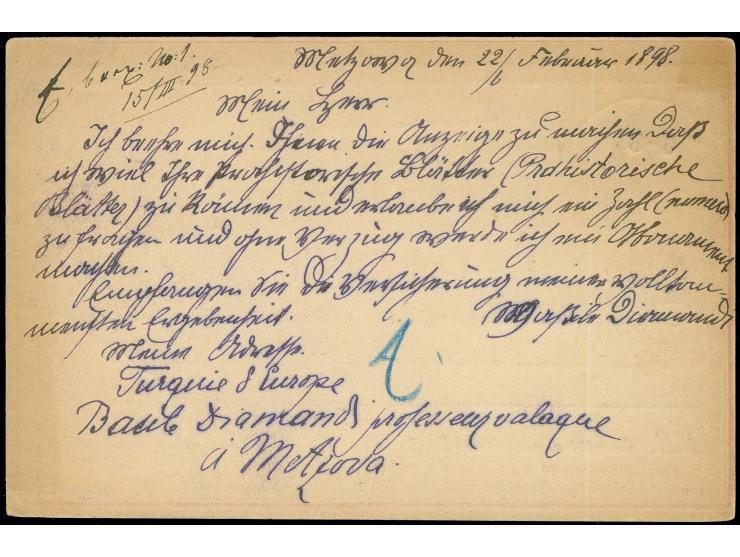 Metzowa den 22/ Februar 1898.
No: 1.
15/III 98.
Mein Herr.
Ich beehre mich. Ihnen die Anzeige zu machen Daß
ich viel Ihre Prohistorische Blätter (Prahistorische
Blätter) zu können und erlaube ich mich ein Zahl (numero)
zu fragen und ohne Verzug werde ich ein Abonament
machen.
Empfangen Sie die Versicherung meiner vollkom-
mensten Ergebenheit.
Diamandi
Meine Adresse.
Turquie d'Europe
Diamandi professeur valaque
à Metzova.